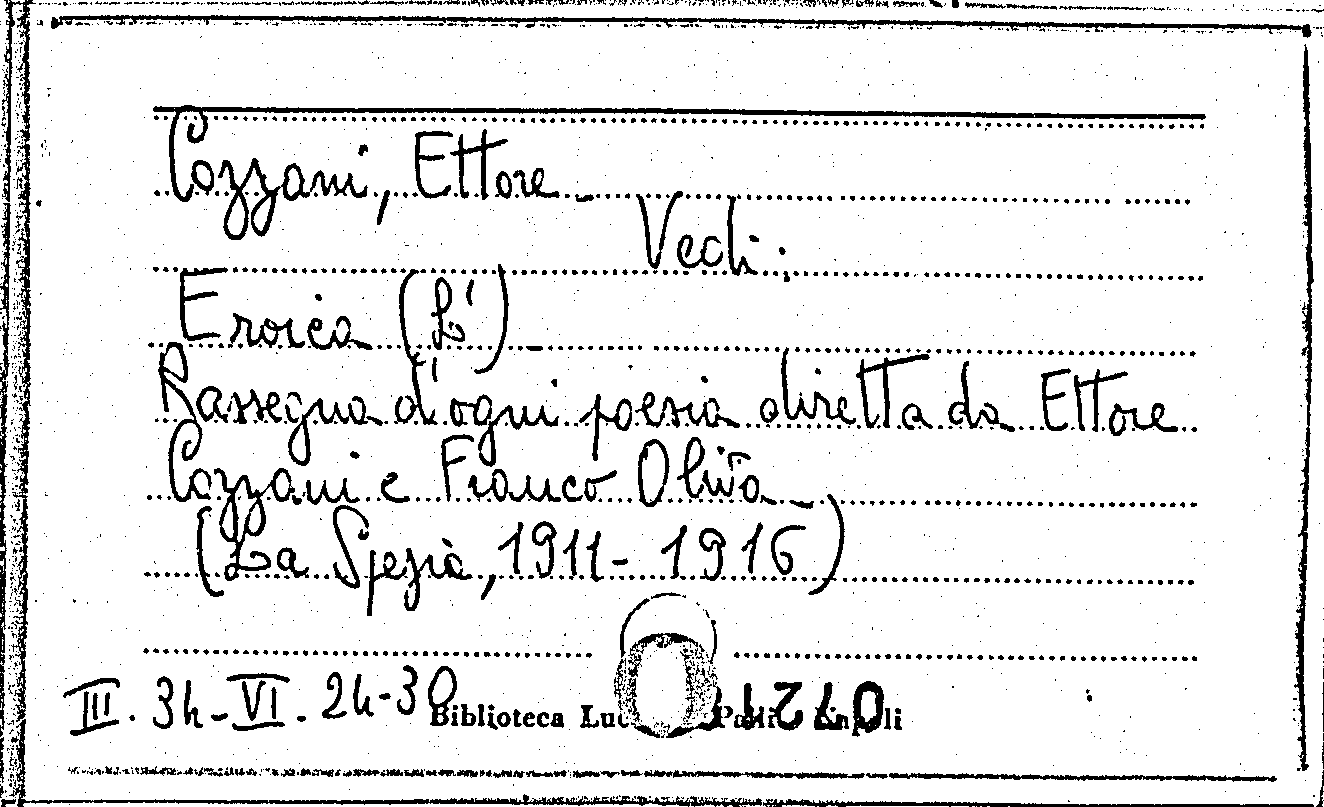 Cozzani, Ettore _
Vedi:
Eroica (L') _
Rassegna d'ogni poesia diretta da Ettore
Cozzani e Franco Oliva _
(La Spezia, 1911 - 1916)
III. 34 - VI. 24-30
Biblioteca Napoli